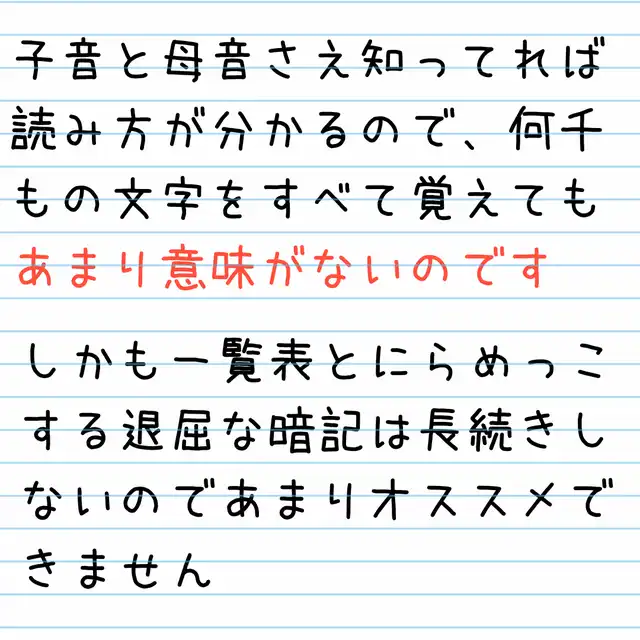 子音と母音さえ知ってれば
読み方が分かるので、何千
もの文字をすべて覚えても
あまり意味がないのです
しかも一覧表とにらめっこ
する退屈な暗記は長続きし
ないのであまりオススメで
きません